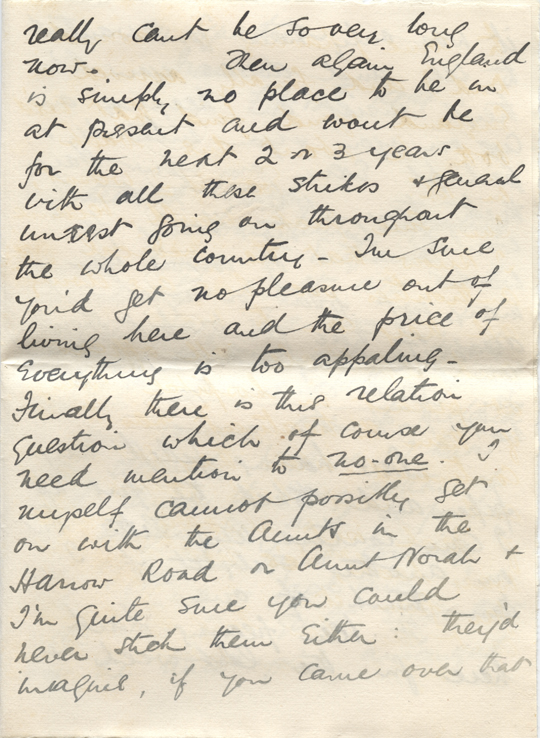 really cant be so very long
now. Then again England
is simply no place to be in
at present and wont be
for the next 2 or 3 years
with all these strikes + general
unrest going on throughout
the whole country - I'm sure
you'd get no pleasure out of
living here and the price of
everything is too appaling -
Finally there is this relation
question which of course you
need mention to no-one. I
myself cannot possibly get
on with the Aunts in the
Harrow Road or Aunt Norah +
I'm quite sure you could
never stick them either: they'd
imagine, if you came over that